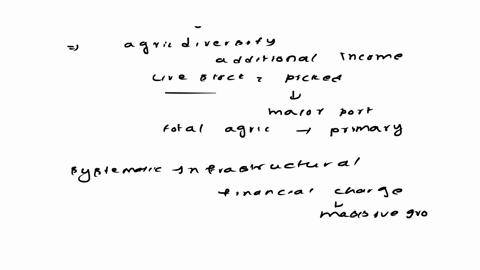 => agric diversity
additional income
Live Stock = picked
↓
major port
total agric → primary
systematic infrastructural
financial charge
↓
massive gro